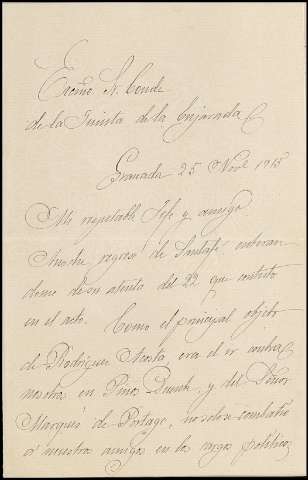 Excmo Sr. Conde
de la Quinta de la Enjarada
Granada 25 Nove 1915
Mi respetable Jefe y amigo
Anoche regresé de Santafé enteran
dome de su atenta del 22 que contesto
en el acto. Como el principal objeto
de Rodriguez Acosta, era el ir contra
nosotros en Pinos Puente, y del Señor
Marqués de Portago, no solo combatir
á nuestros amigos en los cargos políticos